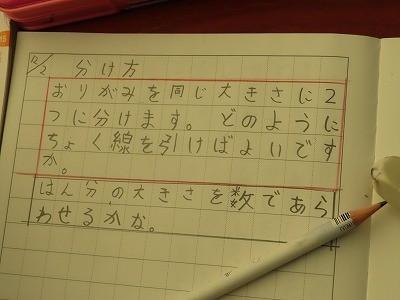 12/2 分け方
おりがみを同じ大きさに2
つに分けます。どのように
ちょく線を引けばよいです
か。
はん分の大きさを数であら
わせるかな。